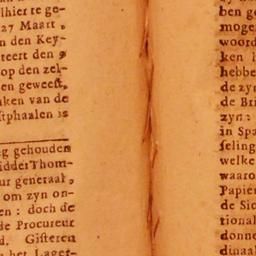 lhier te ge-
27 Maart,
n den Key-
teert den 9
op den zel-
en geweest,
aken van de
stphaalen is
g gehouden
idder Thom-
ur generaal,
om zyn on-
en: doch de
de Procureur
d. Gisteren
het Lager-
ben g
moge
woord
ken
hebbe
de zyn
de Bri
zyn:
in Spa
seling
welke
waaro
Papier
de Sic
tional
donne
dinaal